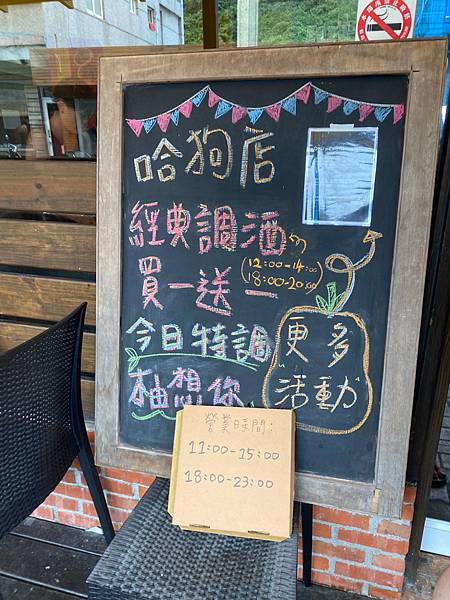 哈狗店
經典調酒
買一送一
(12:00-14:00
18:00-20:00)
今日特調
柚想你
更多
活動
營業時間:
11:00-15:00
18:00-23:00